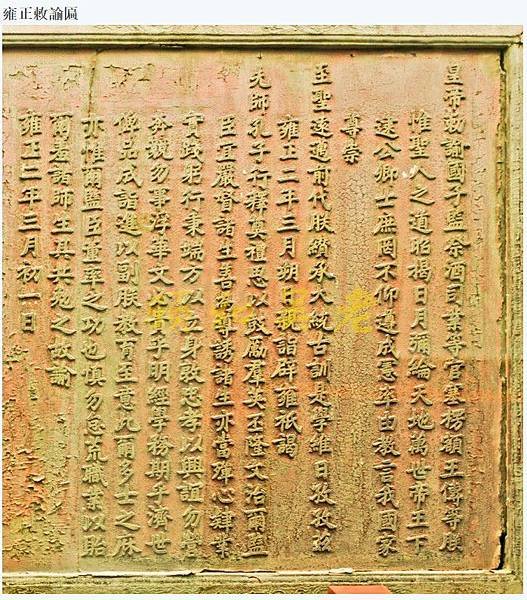 雍正敕諭匾
皇帝敕諭國子監祭酒司業等官塞楞額王傳等朕
惟聖人之道昭揭日月彌綸天地萬世帝王下
逮公卿士庶罔不仰遵成憲率由教言我國家
尊崇
至聖遠邁前代朕纘承大統古訓是學維日孜孜茲
雍正二年三月朔日親詣辟雍祇謁
先師孔子行釋奠禮思以鼓勵羣英丕隆文治爾監
臣宜嚴督諸生善為誘諸生亦當殫心肄業
實踐躬行秉端方以立身敦忠孝以興誼勿營
奔競勿事浮華文必貴乎明經學務期乎濟世
俾品成詣進以副朕教育至意此爾多士之庥
亦惟爾監臣董率之功也慎勿怠荒職業以貽
爾羞諸師生其共勉之故諭
雍正二年三月初一日